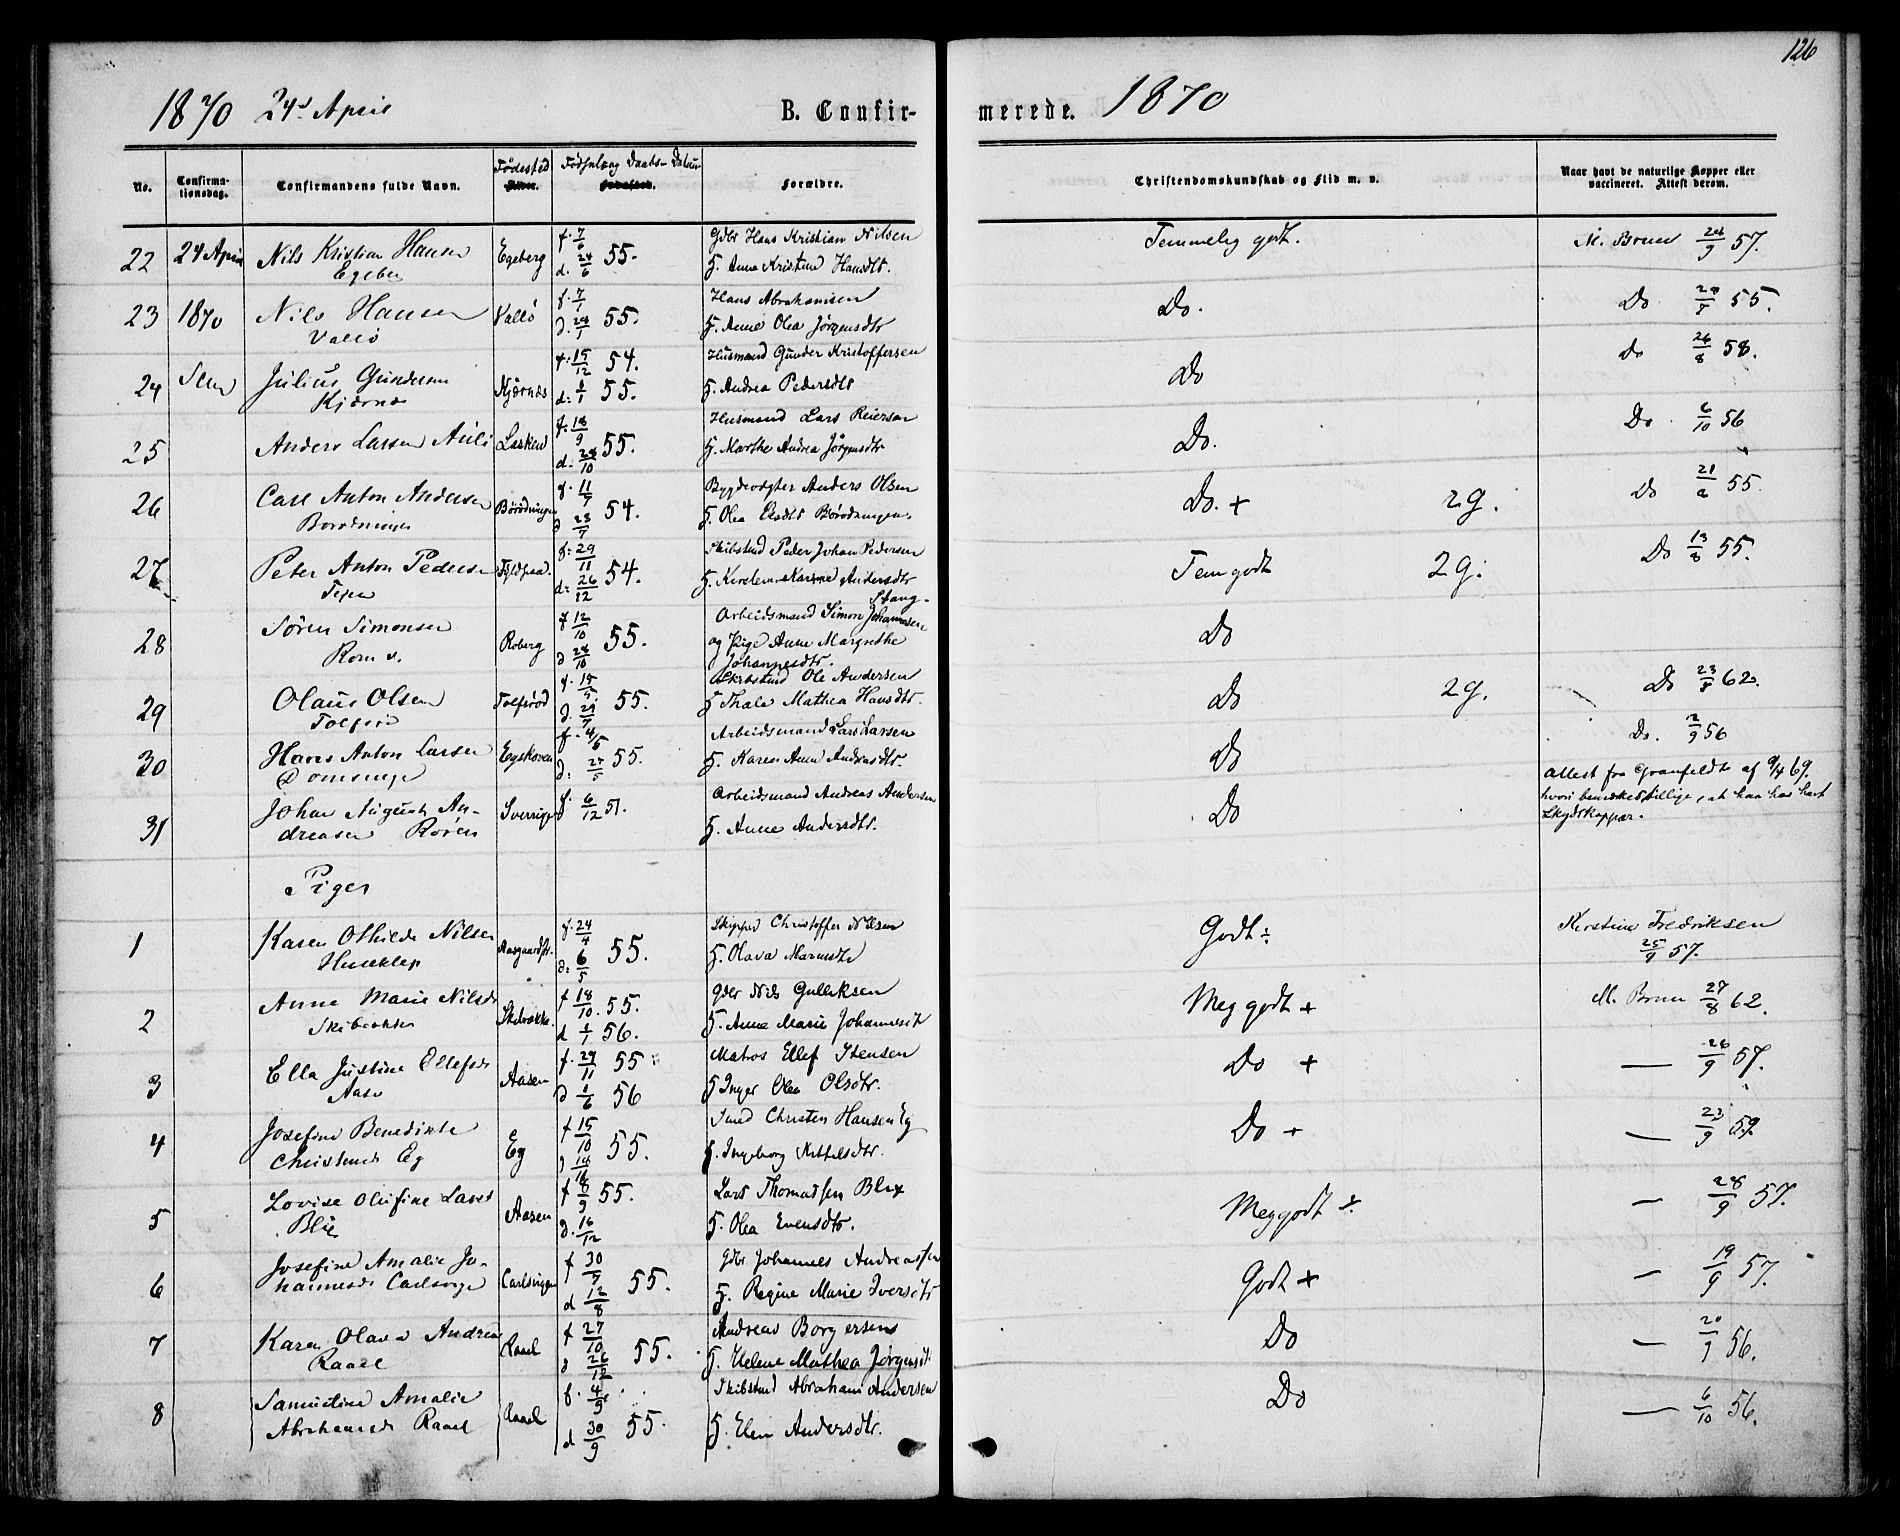 126
1870 24d April B. Confir- merede. 1870
No. Confirma-tionsdag. Confirmandens fulde Navn. Fødested Alder. Fødsels og Daabs-Datum Fødested. Forældre. Christendomskundskab og Flid m. v. Naar havt de naturlige Kopper eller vaccineret. Attest derom.
22 24 April Nils Kristian Hansen Egeberg f. 7/6 55. Gdbr Hans Kristian Nilsen Temmelig godt. M. Bruun 24/9 57.
Egeberg d. 24/6 H. Anne Kristine Hansdtr.
23 1870 Nils Hansen Vallö f. 7/1 55. Hans Abrahamsen Do. Do 55.
Vallö d. 28/1 H. Anne Olea Jörgensdtr
24 Sem Julius Gundersen Kjærnæs f. 15/12 54. Husmand Gunder Kristoffersen Do do 26/8 58.
Kjærnæs d. 1/1 55. H. Andrea Pedersdtr
25 Anders Larsen Aulö f. 18/9 55. Husmand Lars Reiersen Do. Do 6/10 56
d. 28/10 H. Marthe Andrea Jörgensdtr
26 Carl Anton Andersen Börödningen f. 11/7 54. Bygdevægter Anders Olsen Do. + 2g. Do 55.
d 23/7 H. Olea Börödningen.
27 Peter Anton Pedersen f. 29/11 54. Skibstmd Peder Johan Pedersen Tem godt 2g. Do 13/8 55.
d. 26/12 H. Andersdtr
Stang-
28 Sören Simonsen Roberg f 12/10 55. Arbeidsmand Simon Johannesen Do
d 28/10 og Pige Anne Margrethe
Johannesdtr.
29 Olaus Olsen Tolfsröd f. 15/5 55. Skibstmd Ole Andersen Do 2g. Do 23/8 62.
d. 29/7 H Thale Mathea Hansdtr.
30 Hans Anton Larsen Egskoven f. 4/5 55. Arbeidsmand Lars Larsen Do Do. 2/9 56
d. 27/5 H. Karen Anne Andersdtr.
31 Johan August An- Sverrige f. 6/12 51. Arbeidsmand Andreas Andersen Do Attest fra Granfeldt af 9/4 69.
dreasen Roren H. Anne Andersdtr. hvori bemærkes tillige, at han har havt
Skydskopper.
Piger
1 Karen Othilde Nilsen Aasgaardstr. f. 24/4 55. Skipper Christoffer Nilsen Godt ÷ Kirstine Fredriksen
Huseklep d. 6/5 H. Olava 25/9 57.
2 Anne Marie Nilsd f 18/10. 55. Gdbr Nils Gulliksen Meg godt + M. Bruun 27/8 62.
d 1/1 56. H. Anne Marie Johannesdt
3 Ella Justine Ellefsd Aasen f. 29/11 55 Matros Ellef Do + — 26/9 57.
Aase d 1/6 56 H Inger Olea Olsdtr.
4 Josefine Benedikte Eg f 15/10 55. Smed Christen Hansen Eg Do + — 23/9 59
Christensd Eg H. Ingeborg Kittelsdtr.
5 Lovise Olufine Larsd Aasen f 8/9 55. Lars Thomassen Blix Meg godt ÷ — 28/9 57.
Blix d. 16/12 H. Olea Evensdtr.
6 Josefine Amalie Jo- Carlsvigen f 30/7 55. Gdbr Johannes Andreassen Godt + — 19/9 57.
hannesd Carlsvige d 12/8 H. Regine Marie Iversdtr
7 Karen Olava Andrea Raael f 27/10 55. Andreas Borgersens Do — 56.
Raael d 26/12 H. Helene Mathea Jörgensdt
8 Samueline Amalie Raael f. 4/9 55. Skibstmd Abraham Andersen Do — 6/10 56.
Abrahamsd Raael d 30/9 H. Elen Andersdtr.